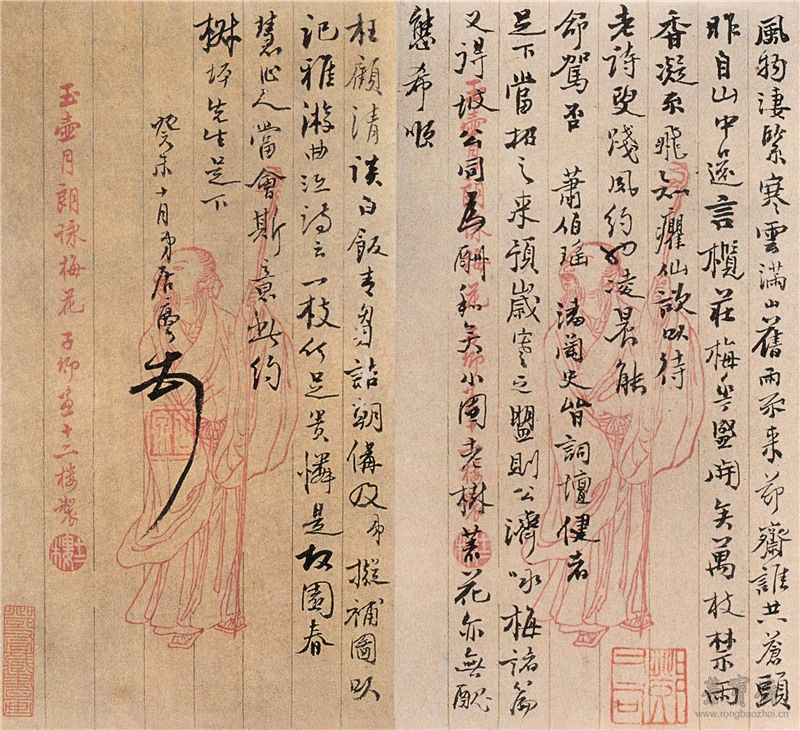 風物淒緊寒雲滿山舊雨不來茆齋誰共蒼頭
昨自山中還言欖莊梅華盛開矣萬枝禁雨
香凝不飛知癯仙欲以待
老詩叟踐夙約也凌晨能
命駕否 蕭伯瑤 潘蘭史皆詞壇健者
足下當招之來預歲寒之盟則公濟咏梅諸篇
又得坡公同為酬和矣小園老樹著花亦無醜
態希順
枉顧清談白飯青芻詰朝僃及弟擬補圖以
記雅游曲江詩云一枝何足貴憐是故園春
慧心人當會斯意此約
樹坪先生足下
癸未十月弟居廉
玉壺月朗詠梅花 子卿画十二樓製
十二樓
www.rongbaozhai.cn